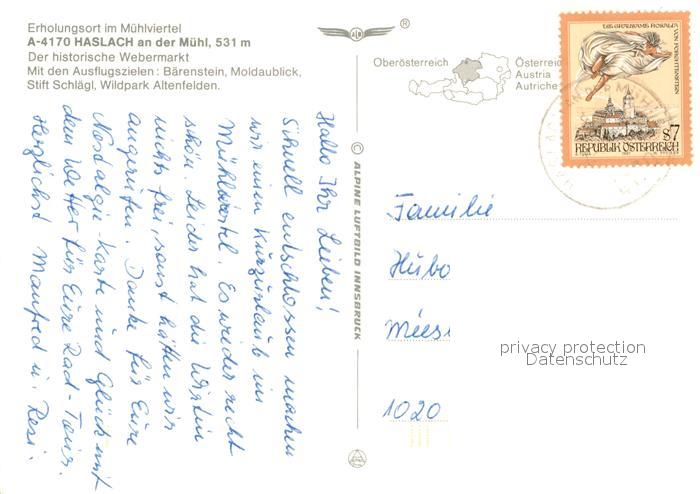 Erholungsort im Mühlviertel
A-4170 HASLACH an der Mühl, 531 m
Der historische Webermarkt
Mit den Ausflugszielen: Bärenstein, Moldaublick,
Stift Schlägl, Wildpark Altenfelden.
®
Oberösterreich
Österreich
Austria
Autriche
DIE GRAUSAME ROSALIA
VON FORCHTENSTEIN
S7
REPUBLIK ÖSTERREICH
Hallo Ihr Lieben!
Schnell entschlossen machen
wir einen Kurzurlaub im
Mühlviertel. Es wieder recht
schön. Leider hat die Wirtin
nichts frei, sonst hätten wir
angerufen. Danke für Eure
Nostalgie-Karte und Glück mit
dem Wetter für Eure Rad-Tour.
Herzlichst Manfred u. Resi
© ALPINE LUFTBILD INNSBRUCK
Familie
Hubo
1020
privacy protection
Datenschutz